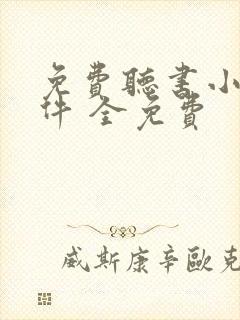 免費聽書小
件 全免費
威斯康辛歐克